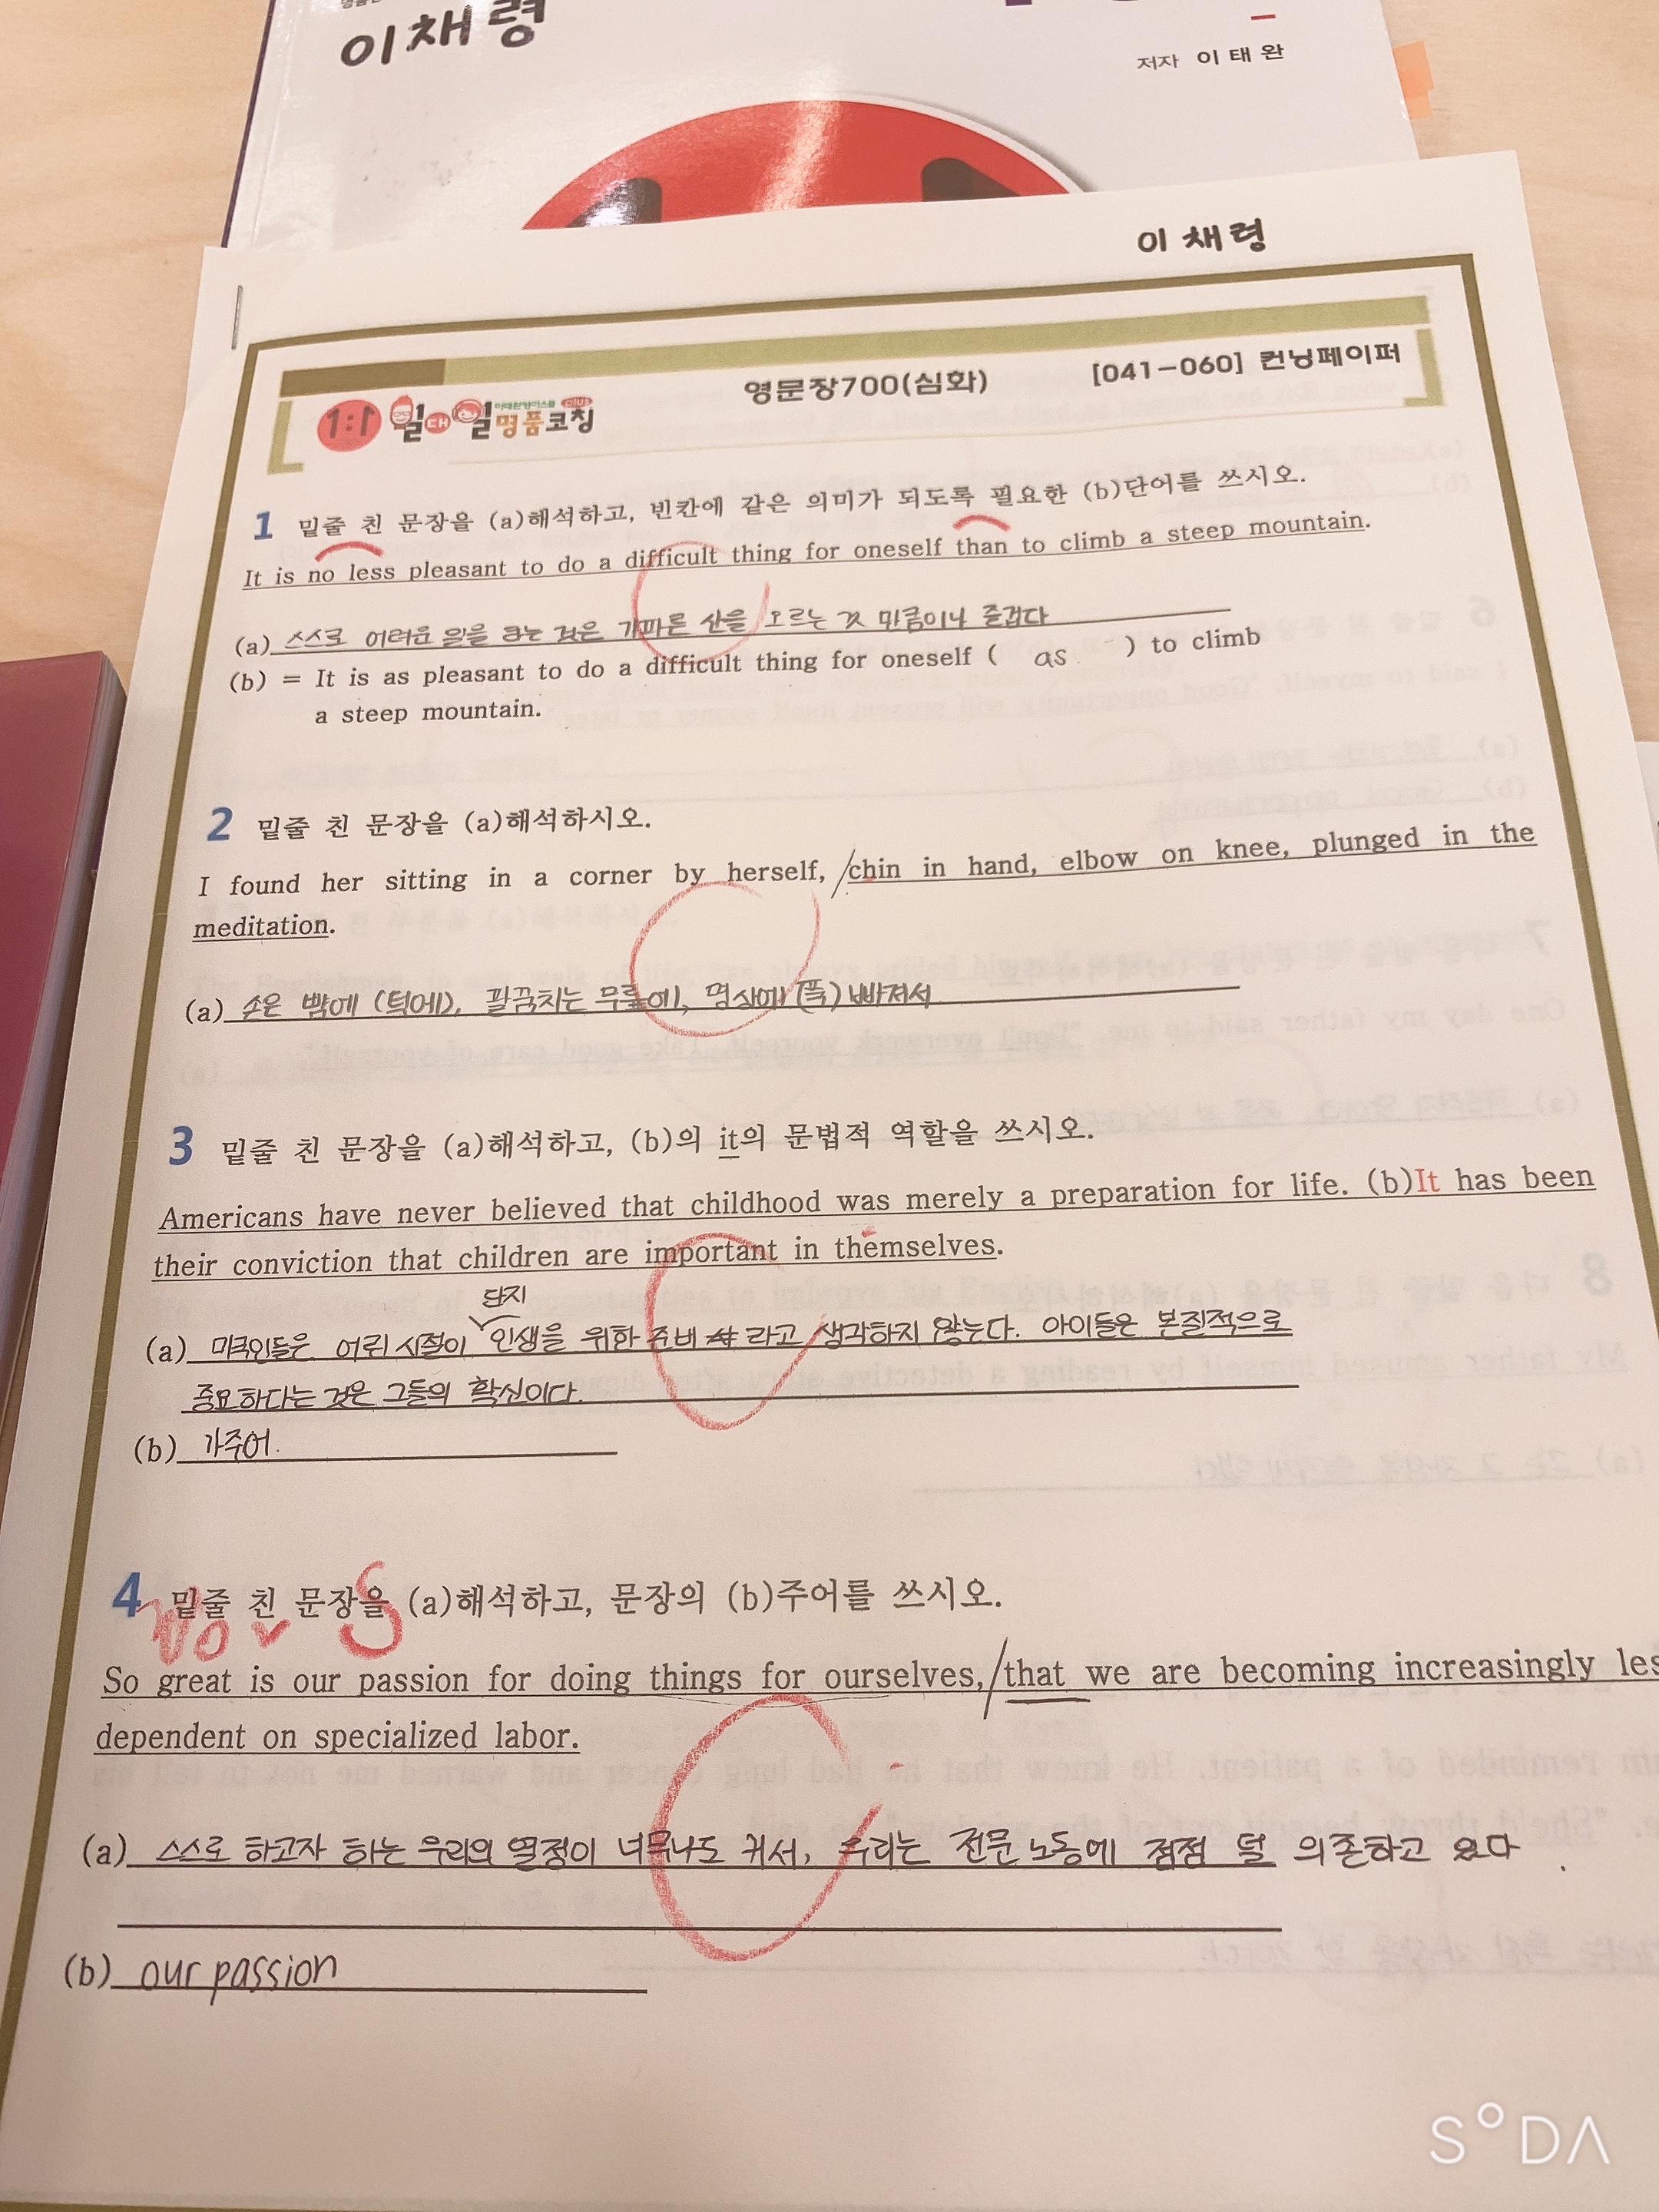 이채령
저자 이태완
이채령
1:1 일대일 명품코칭
영문장700(심화)
[041-060] 컨닝페이퍼
1 밑줄 친 문장을 (a)해석하고, 빈칸에 같은 의미가 되도록 필요한 (b)단어를 쓰시오.
It is no less pleasant to do a difficult thing for oneself than to climb a steep mountain.
(a) 스스로 어려운 일을 하는 것은 가파른 산을 오르는 것 만큼이나 즐겁다
(b) = It is as pleasant to do a difficult thing for oneself ( as ) to climb
a steep mountain.
2 밑줄 친 문장을 (a)해석하시오.
I found her sitting in a corner by herself, chin in hand, elbow on knee, plunged in the
meditation.
(a) 손은 뺨에 (턱에), 팔꿈치는 무릎에, 명상에 (푹) 빠져서
3 밑줄 친 문장을 (a)해석하고, (b)의 it의 문법적 역할을 쓰시오.
Americans have never believed that childhood was merely a preparation for life. (b)It has been
their conviction that children are important in themselves.
단지
(a) 미국인들은 어린 시절이 인생을 위한 준비 라고 생각하지 않는다. 아이들은 본질적으로
중요하다는 것은 그들의 확신이다.
(b) 가주어.
4 밑줄 친 문장을 (a)해석하고, 문장의 (b)주어를 쓰시오.
V S
So great is our passion for doing things for ourselves, that we are becoming increasingly les
dependent on specialized labor.
(a) 스스로 하고자 하는 우리의 열정이 너무나도 커서, 우리는 전문 노동에 점점 덜 의존하고 있다.
(b) our passion
SODA